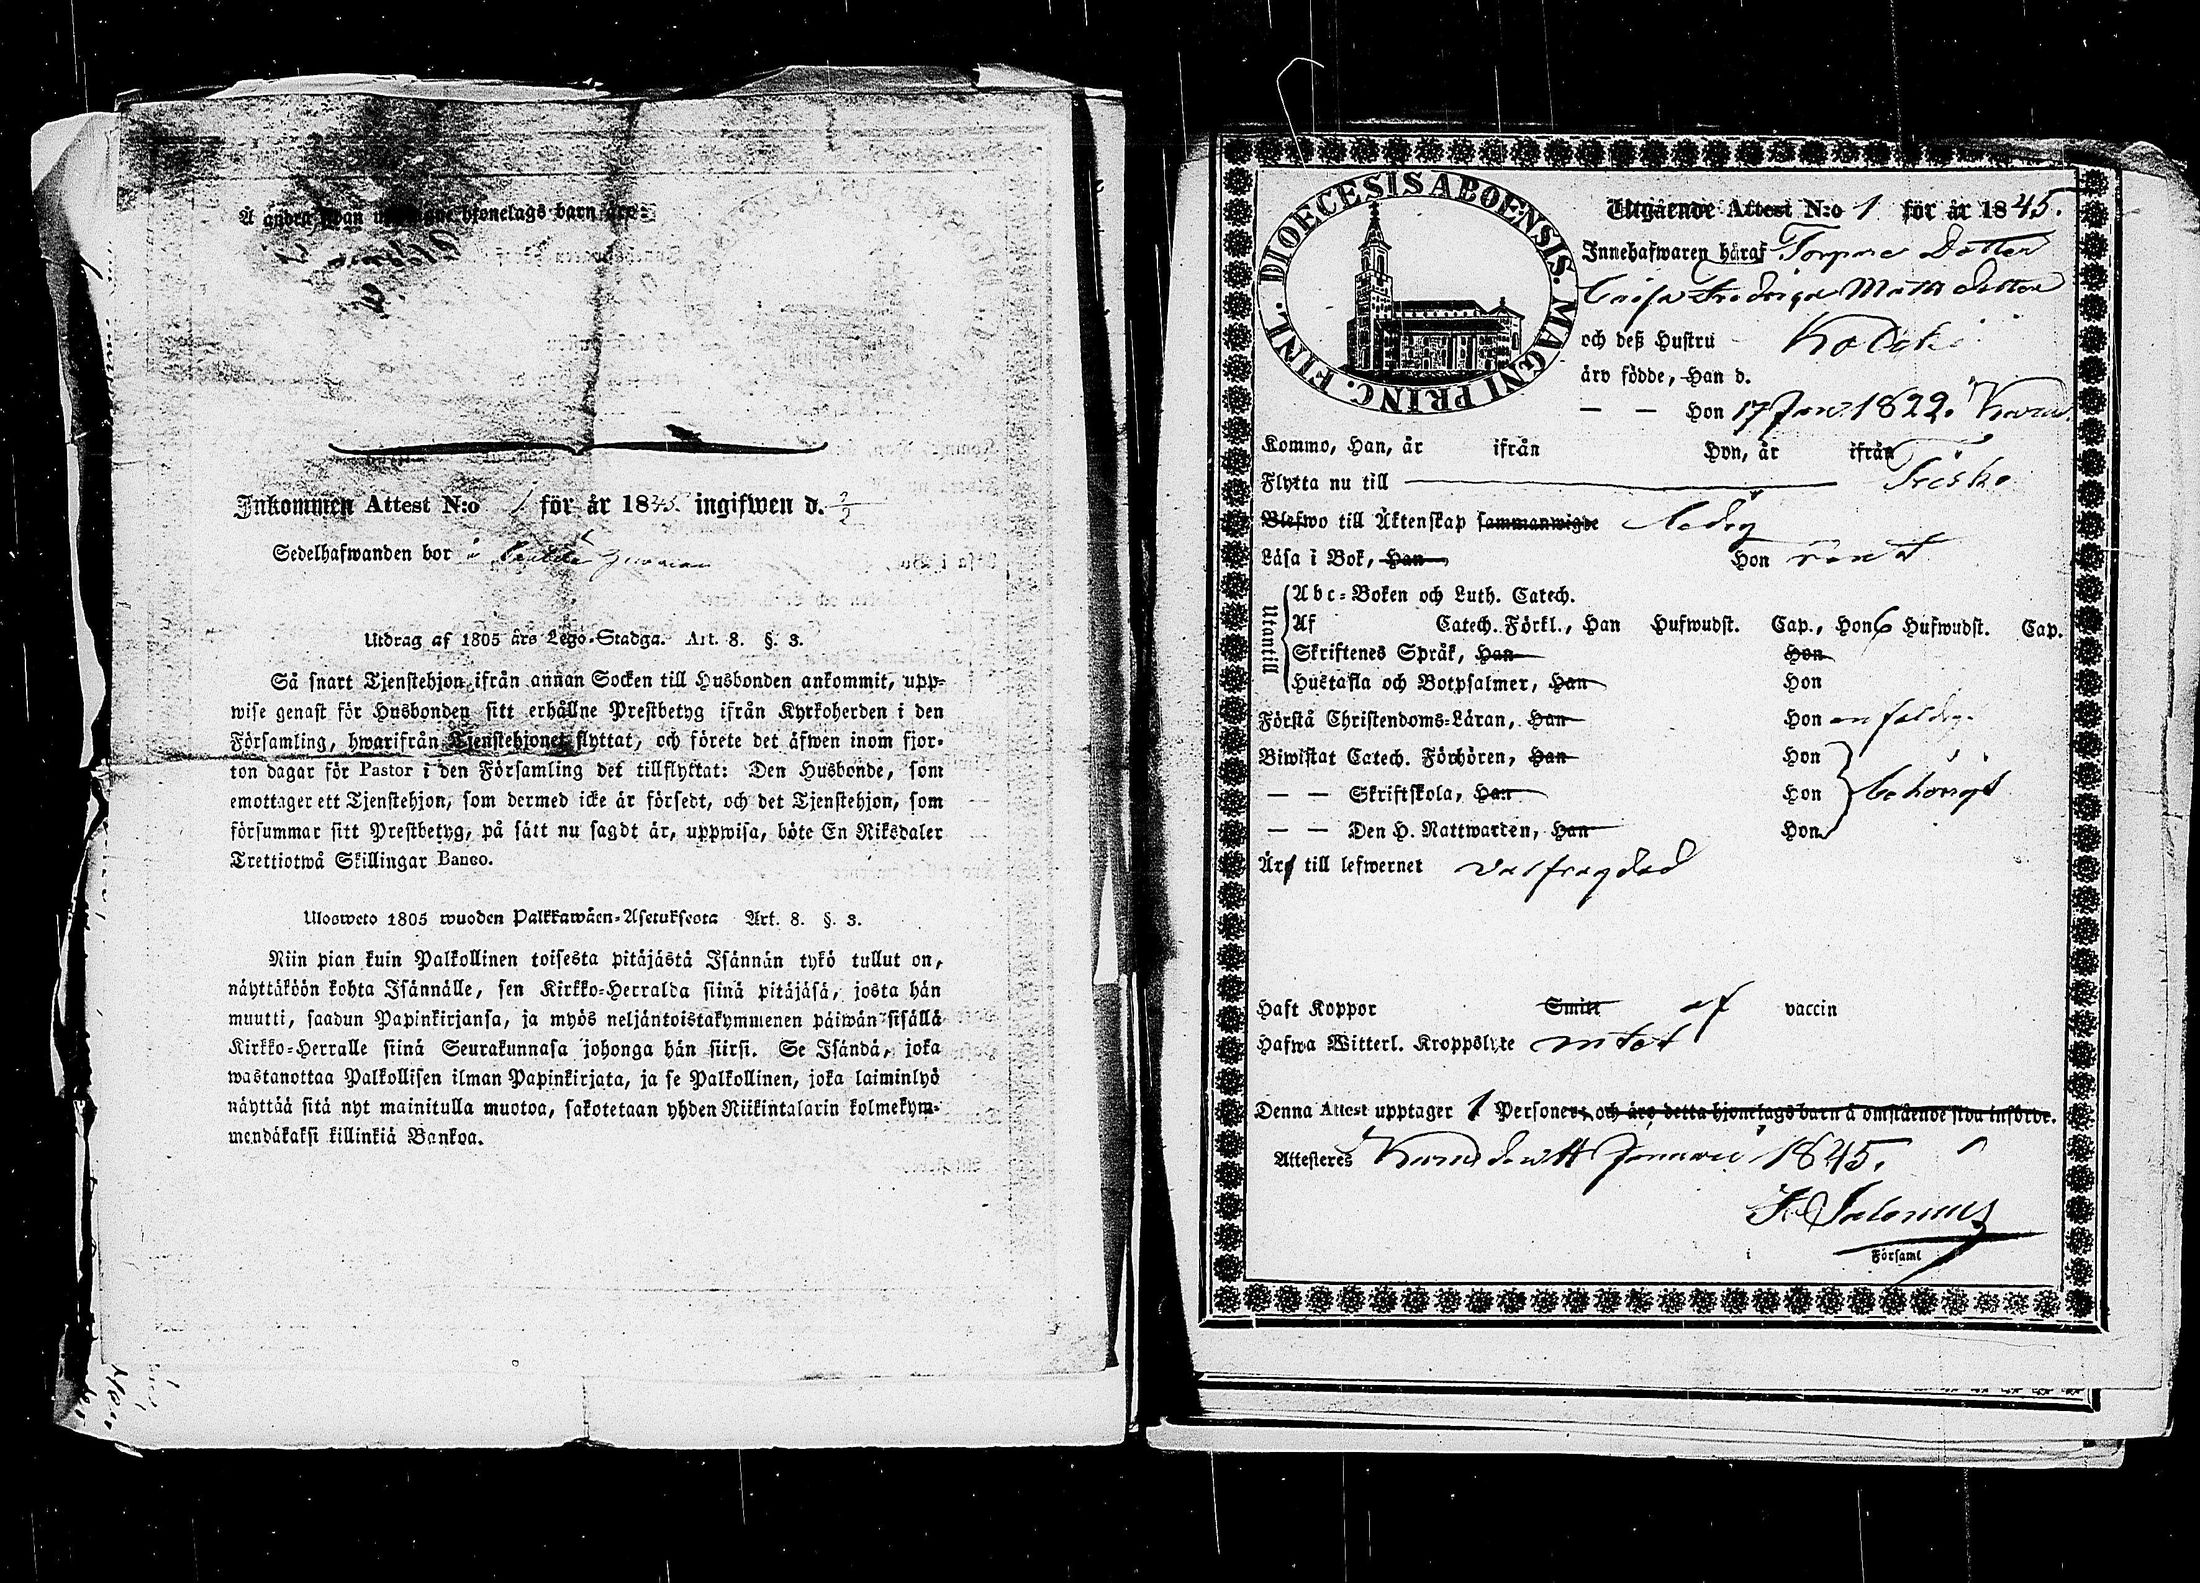 Å andra sidan upptagne hjonelags barn äro:
Inkommen Attest N:o 1 för år 1845. ingifwen d. 2/2
Sedelhafwanden bor i
Utdrag af 1805 års Lego-Stadga. Art. 8. §. 3.
Så snart Tjenstehjon ifrån annan Socken till Husbonden ankommit, upp-
wise genast för Husbonden sitt erhållne Prestbetyg ifrån Kyrkoherden i den
Församling, hwarifrån Tjenstehjonet flyttat, och förete det äfwen inom fjor-
ton dagar för Pastor i den Församling det tillflyttat: Den Husbonde, som
emottager ett Tjenstehjon, som dermed icke är försedt, och det Tjenstehjon, som
försummar sitt Prestbetyg, på sätt nu sagdt är, uppwisa, böte En Riksdaler
Trettiotwå Skillingar Banco.
Ulosweto 1805 wuoden Palkkawäen-Asetuksesta Art. 8. §. 3.
Niin pian kuin Palkollinen toisesta pitäjästä Isännän tykö tullut on,
näyttäköön kohta Isännälle, sen Kirkko-Herralda siinä pitäjäsä, josta hän
muutti, saadun Papinkirjansa, ja myös neljäntoistakymmenen päiwän sisällä
Kirkko-Herralle siinä Seurakunnasa johonga hän siirsi. Se Isändä, joka
wastanottaa Palkollisen ilman Papinkirjata, ja se Palkollinen, joka laiminlyö
näyttää sitä nyt mainitulla muotoa, sakotetaan yhden Riikintalarin kolmekym-
mendäkaksi killinkiä Bankoa.
DIOECESIS ABOENSIS. MAGNI PRINC. FINL.
Utgående Attest N:o 1 för år 1845.
Innehafwaren häraf Torpare Dotter
Caisa Fredrica Matts dotter
och deß Hustru
äro födde, Han d.
— — Hon 17 Jan. 1822.
Kommo, Han, år ifrån Hon, år ifrån
Flytta nu till
Blefwo till Äktenskap sammanwigde ledig
Läsa i Bok, Han Hon rent
Utantill
Abc-Boken och Luth. Catech.
Af Catech. Förkl., Han Hufwudst. Cap., Hon 6 Hufwudst. Cap.
Skriftenes Språk, Han Hon
Hustafla och Botpsalmer, Han Hon
Förstå Christendoms-Läran, Han Hon enfaldigt
Biwistat Catech. Förhören, Han Hon
— — Skriftskola, Han Hon behörigt
— — Den H. Nattwarden, Han Hon
Äro till lefwernet välfrägdad
Haft Koppor Smitt af vaccin
Hafwa Witterl. Kroppslyte intet
Denna Attest upptager 1 Personer, och äro detta hjonelags barn å omstående sida införde.
Attesteres Januari 1845.
i Församl